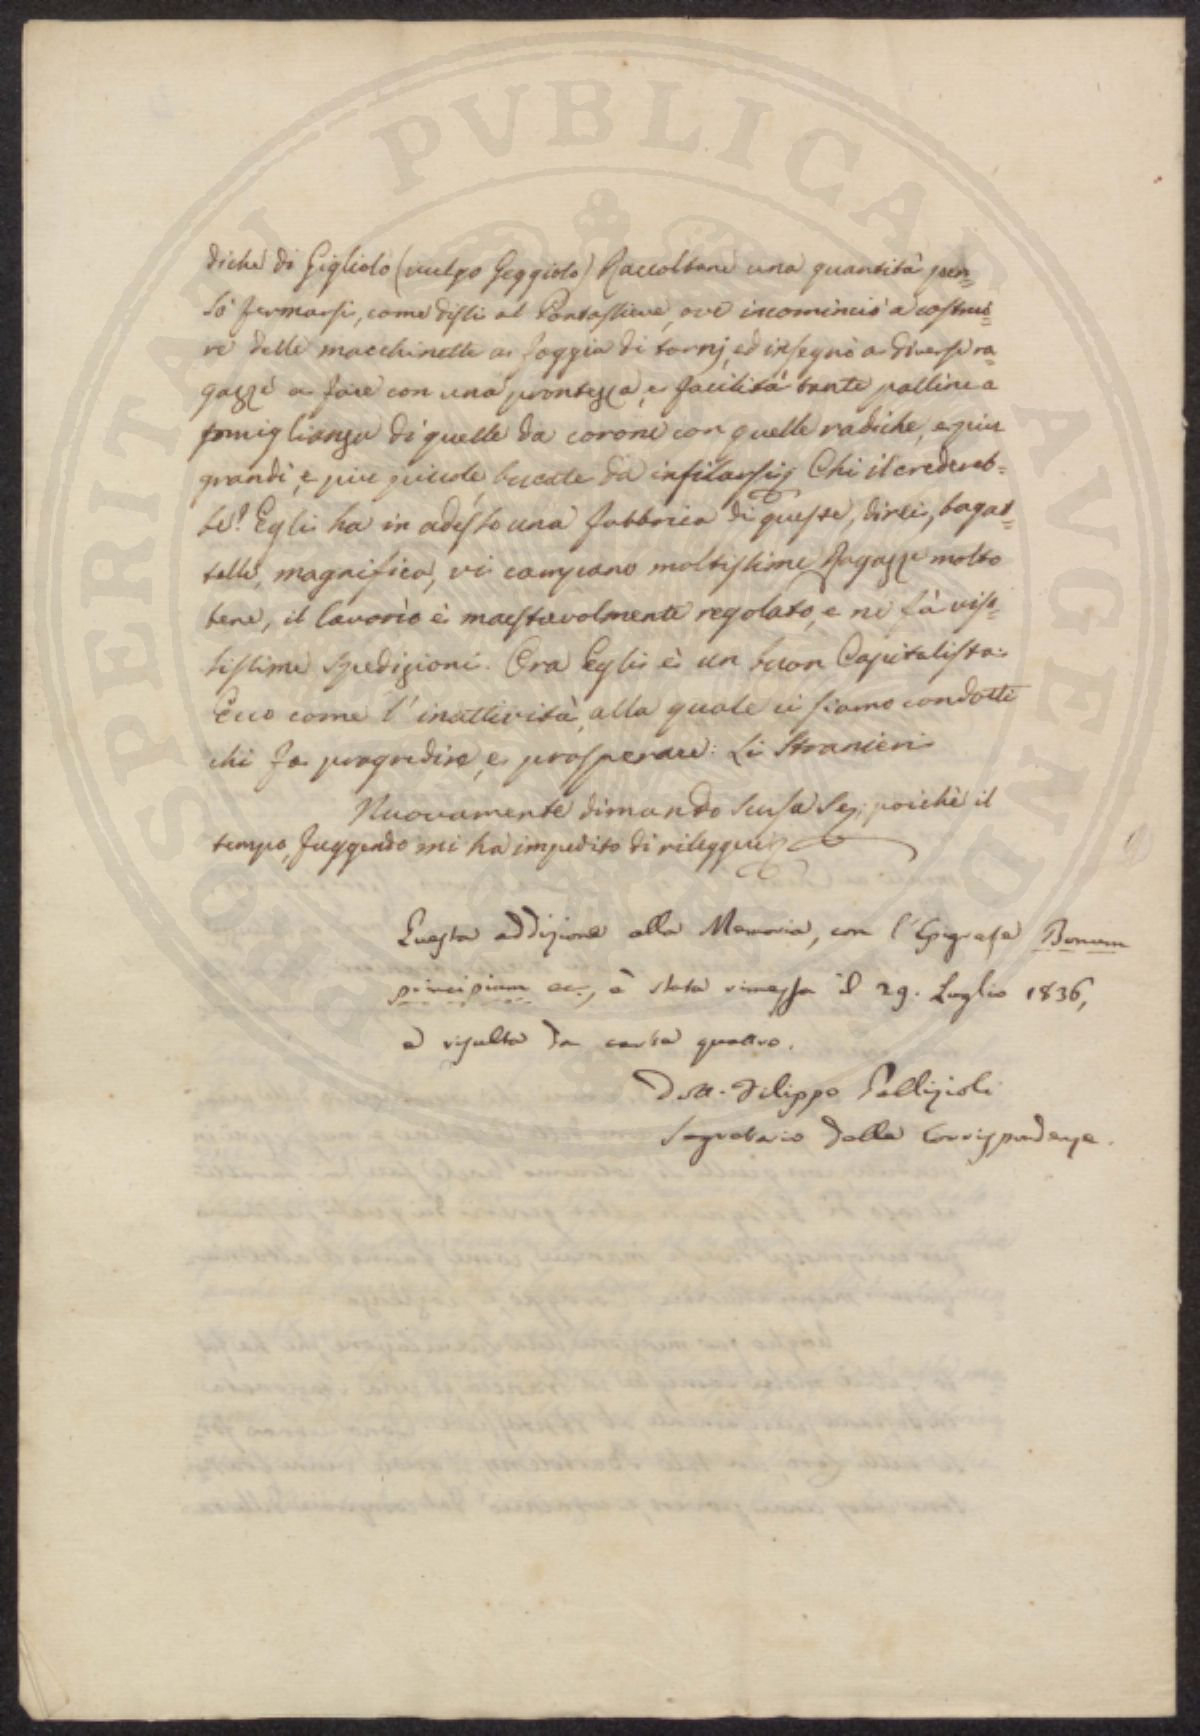 diche di Gigliolo (vulgo Geggiolo) Raccoltane una quantità pen=
sò fermarsi, come dissi al Pontassieve, ove incominciò a costrui=
re delle macchinette a foggia di tornj, ed insegnò a diversi ra=
gazzi a fare con una prontezza, e facilità tante palline a
somiglianza di quelle da corone con quelle radiche, e più
grandi, e più piccole, bucate da infilarsi; Chi il credereb=
be? Egli ha in adesso una fabbrica di queste, direi, bagat=
telle, magnifica, vi campano moltissime Ragazze molto
bene, il lavorìo è maestrevolmente regolato, e ne fà vis=
tissime spedizioni. Ora Egli è un buon Capitalista:
Ecco come l'inattività, alla quale ci siamo condotti
chi fa progredire, e prosperare: Li Stranieri
Nuovamente dimando scusa poichè il
tempo, fuggendo mi ha impedito di rileggere
Questa addizione alla Memoria, con l'Epigrafe Bonum
principium ec., è stata rimessa il 29. Luglio 1836,
e risulta da carte quattro.
Dott. Filippo Pellizioli
Segretario delle Corrispondenze.
PROSPERITATI PVBLICAE AVGENDAE